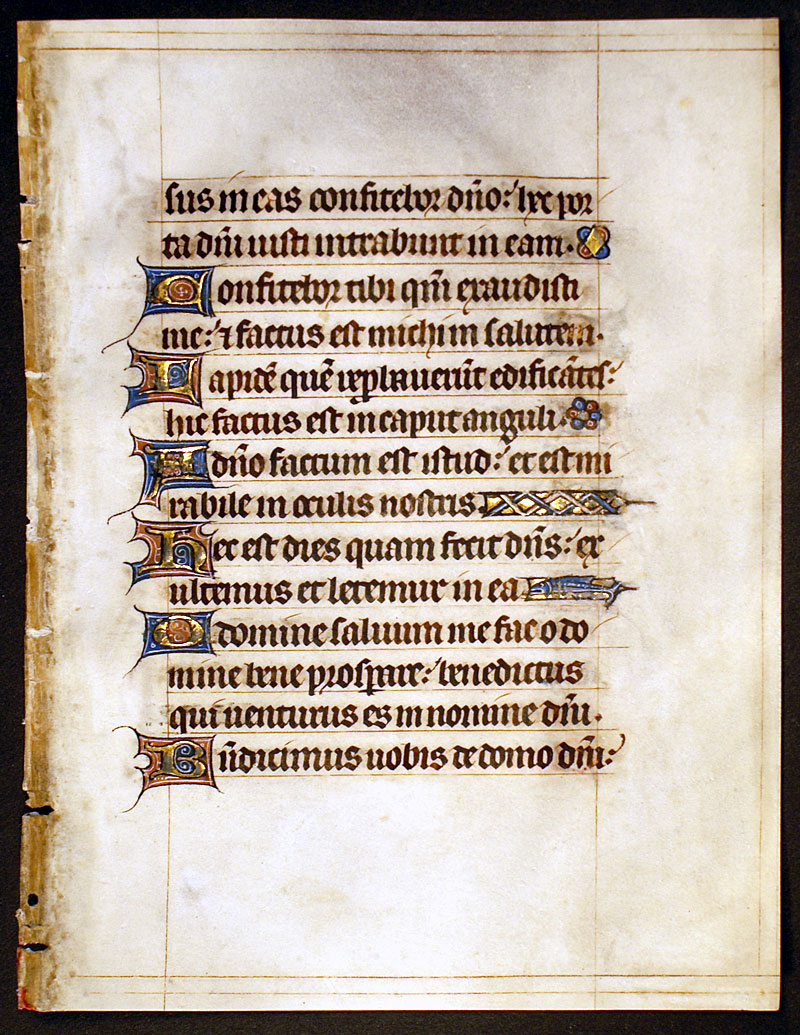 sus in eas confitebor dño: hec por
ta dñi iusti intrabunt in eam.
Confitebor tibi qm̃ exaudisti
me: ⁊ factus est michi in salutem.
Lapidẽ quẽ reprobauerũt edificãtes:
hic factus est in caput anguli.
A dño factum est istud: et est mi
rabile in oculis nostris
Hec est dies quam fecit dñs: ex
ultemus et letemur in ea
O domine saluum me fac o do
mine bene prosperare: benedictus
qui uenturus es in nomine dñi.
Bñdicimus uobis de domo dñi: